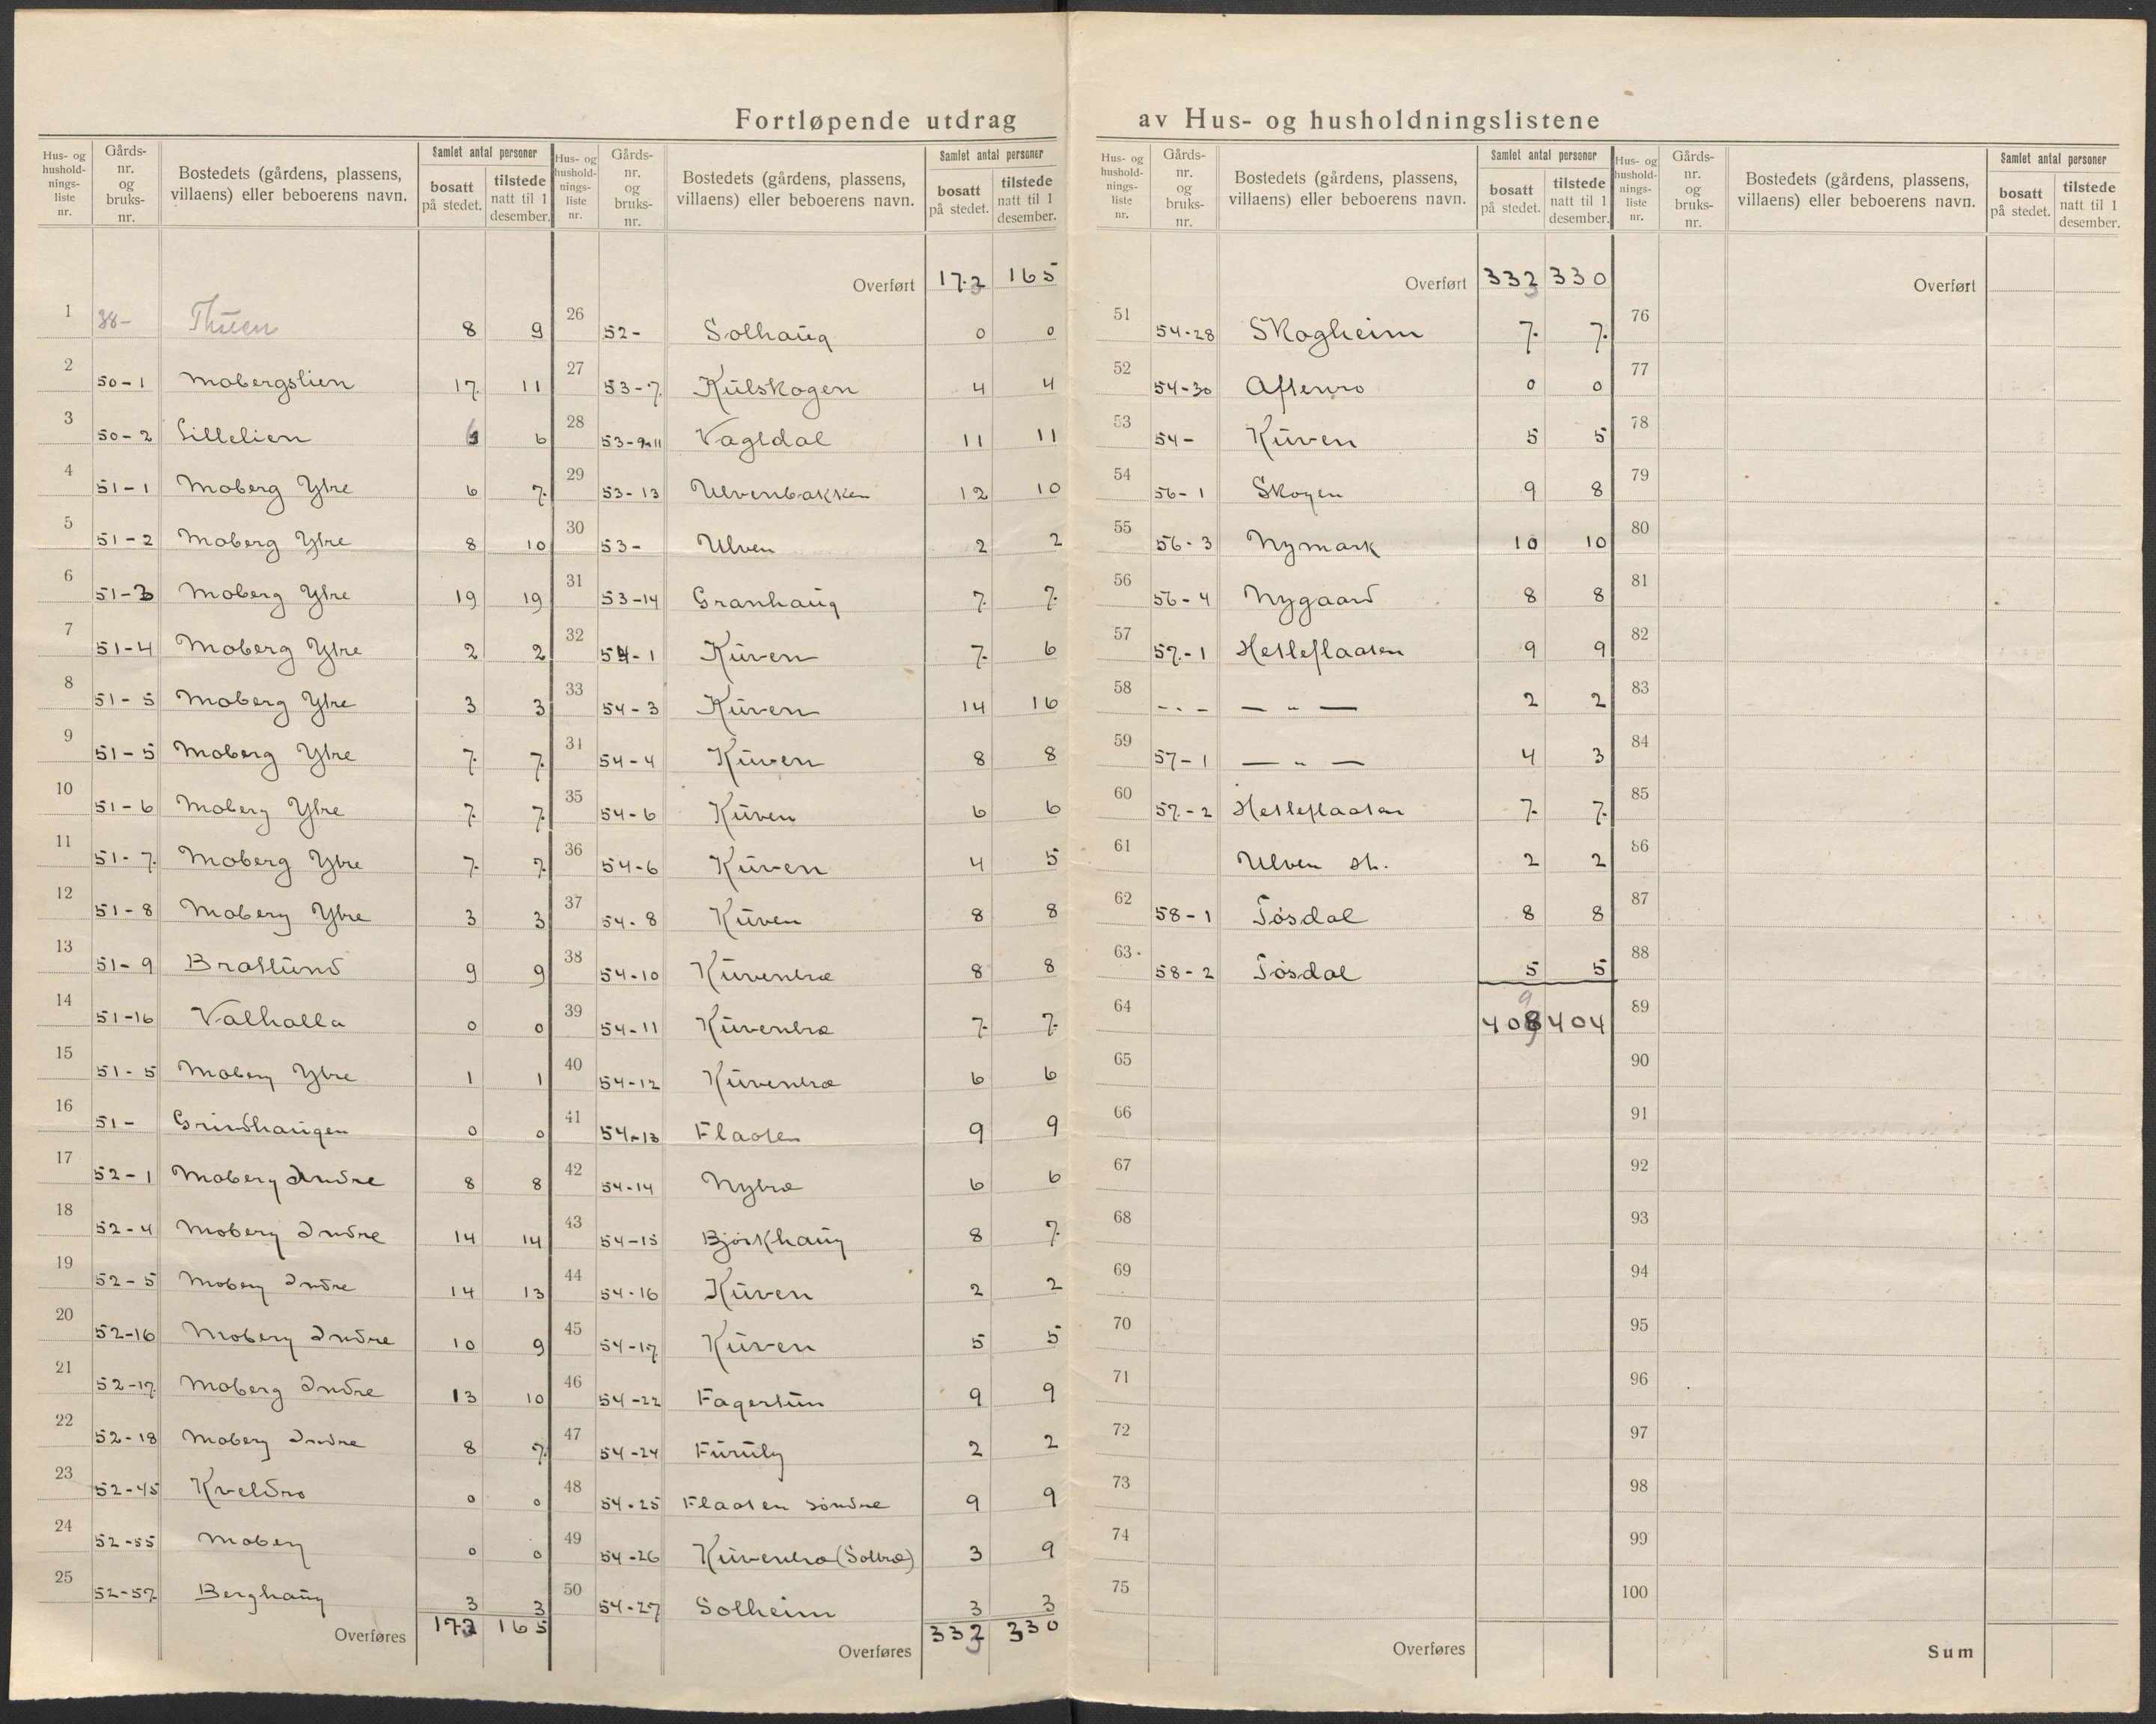 Fortløpende utdrag av Hus- og husholdningslistene
Hus- og hushold-nings-liste nr. | Gårds-nr. og bruks-nr. | Bostedets (gårdens, plassens, villaens) eller beboerens navn. | Samlet antal personer | bosatt på stedet. | tilstede natt til 1 desember.
1 38- Thuen 8 9
2 50-1 Mobergslien 17 11
3 50-2 Lillelien 6 6
4 51-1 Moberg Ytre 6 7
5 51-2 Moberg Ytre 8 10
6 51-3 Moberg Ytre 19 19
7 51-4 Moberg Ytre 2 2
8 51-5 Moberg Ytre 3 3
9 51-5 Moberg Ytre 7 7
10 51-6 Moberg Ytre 7 7
11 51-7 Moberg Ytre 7 7
12 51-8 Moberg Ytre 3 3
13 51-9 Bratlund 9 9
14 51-16 Valhalla 0 0
15 51-5 Moberg Ytre 1 1
16 51- Grindhaugen 0 0
17 52-1 Moberg Indre 8 8
18 52-4 Moberg Indre 14 14
19 52-5 Moberg Indre 14 13
20 52-16 Moberg Indre 10 9
21 52-17 Moberg Indre 13 10
22 52-18 Moberg Indre 8 7
23 52-45 Kveldro 0 0
24 52-55 Moberg 0 0
25 52-57 Berghaug 3 3
Overføres 173 165
Hus- og hushold-nings-liste nr. | Gårds-nr. og bruks-nr. | Bostedets (gårdens, plassens, villaens) eller beboerens navn. | Samlet antal personer | bosatt på stedet. | tilstede natt til 1 desember.
Overført 173 165
26 52- Solhaug 0 0
27 53-7 Kulskogen 4 4
28 53-9-11 Vagldal 11 11
29 53-13 Ulvenbakken 12 10
30 53- Ulven 2 2
31 53-14 Granhaug 7 7
32 54-1 Kuven 7 6
33 54-3 Kuven 14 16
34 54-4 Kuven 8 8
35 54-6 Kuven 6 6
36 54-6 Kuven 4 5
37 54-8 Kuven 8 8
38 54-10 Kuventræ 8 8
39 54-11 Kuventræ 7 7
40 54-12 Kuventræ 6 6
41 54-13 Flaaten 9 9
42 54-14 Nytræ 6 6
43 54-15 Bjørkhaug 8 7
44 54-16 Kuven 2 2
45 54-17 Kuven 5 5
46 54-22 Fagertun 9 9
47 54-24 Furuly 2 2
48 54-25 Flaaten søndre 9 9
49 54-26 Kuventræ (Soltræ) 3 9
50 54-27 Solheim 3 3
Overføres 333 330
Hus- og hushold-nings-liste nr. | Gårds-nr. og bruks-nr. | Bostedets (gårdens, plassens, villaens) eller beboerens navn. | Samlet antal personer | bosatt på stedet. | tilstede natt til 1 desember.
Overført 333 330
51 54-28 Skogheim 7 7
52 54-30 Aftenro 0 0
53 54- Kuven 5 5
54 56-1 Skogen 9 8
55 56-3 Nymark 10 10
56 56-4 Nygaard 8 8
57 57-1 Hetleflaaten 9 9
58 - - - — " — 2 2
59 57-1 — " — 4 3
60 57-2 Hetleflaaten 7 7
61 Ulven st. 2 2
62 58-1 Tøsdal 8 8
63 58-2 Tøsdal 5 5
64 409 404
65
66
67
68
69
70
71
72
73
74
75
Overføres
Hus- og hushold-nings-liste nr. | Gårds-nr. og bruks-nr. | Bostedets (gårdens, plassens, villaens) eller beboerens navn. | Samlet antal personer | bosatt på stedet. | tilstede natt til 1 desember.
Overført
76
77
78
79
80
81
82
83
84
85
86
87
88
89
90
91
92
93
94
95
96
97
98
99
100
Sum